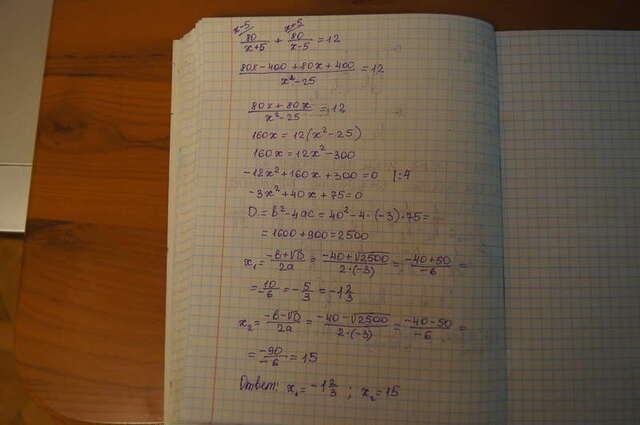 x-5 x+5
80/(x+5) + 80/(x-5) = 12
(80x-400+80x+400)/(x²-25) = 12
(80x+80x)/(x²-25) = 12
160x = 12(x²-25)
160x = 12x²-300
-12x²+160x+300=0 |:4
-3x²+40x+75=0
D = b²-4ac = 40²-4·(-3)·75=
= 1600+900=2500
x₁ = (-b+√D)/2a = (-40+√2500)/(2·(-3)) = (-40+50)/-6 =
= 10/-6 = -5/3 = -1 2/3
x₂ = (-b-√D)/2a = (-40-√2500)/(2·(-3)) = (-40-50)/-6 =
= -90/-6 = 15
Ответ: x₁ = -1 2/3 ; x₂ = 15